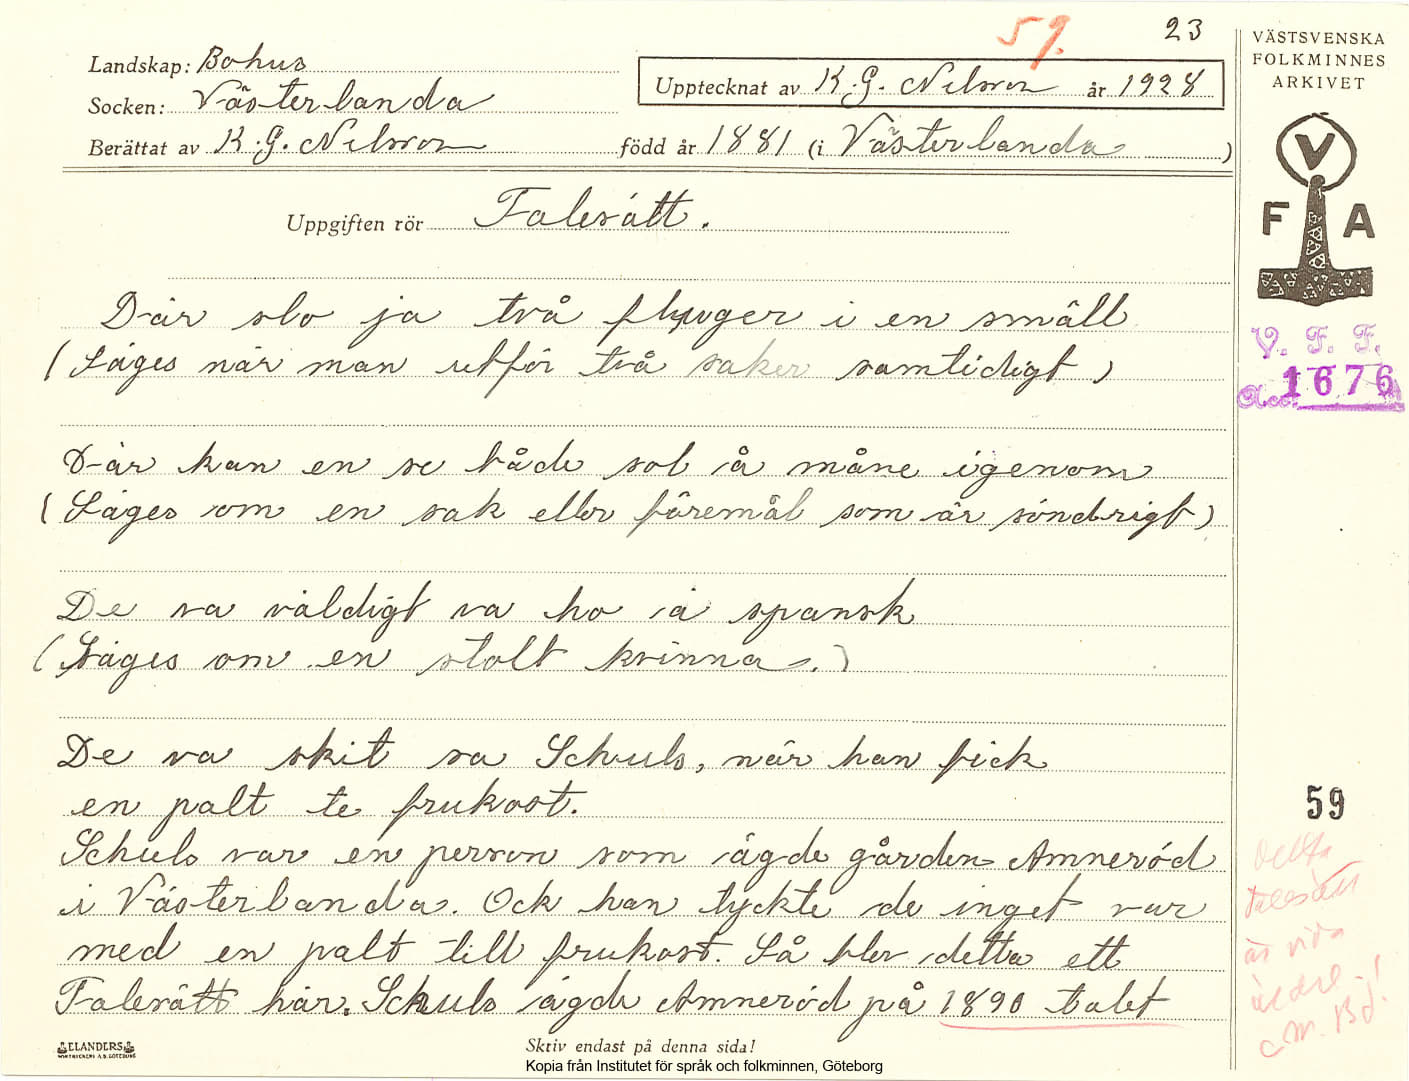 59.
23
Landskap: Bohus
Socken: Västerlanda
Berättat av K. G. Nilsson
Upptecknat av K. G. Nilsson år 1928
född år 1881 (i Västerlanda )
Uppgiften rör Talesätt.
Där slo ja två fluger i en smäll
(Säges när man utför två saker samtidigt)
Där kan en se både sol å måne igenom
(Säges om en sak eller föremål som är söndrigt)
De va väldigt va ho ä spansk
(Säges om en stolt kvinna.)
De va skit sa Schuls, när han fick
en palt te frukost.
Schuls var en person som ägde gården Amneröd
i Västerlanda. Ock han tyckte de inget var
med en palt till frukost. Så blev detta ett
Talesätt här. Schuls ägde Amneröd på 1890 talet
ELANDERS
BOKTRYCKERI A.B. GÖTEBORG
Skriv endast på denna sida!
Kopia från Institutet för språk och folkminnen, Göteborg
VÄSTSVENSKA
FOLKMINNES
ARKIVET
V
F A
V. F. F.
Acc. 1676
59
Detta
talesätt
är vida
äldre!
M. Bd.